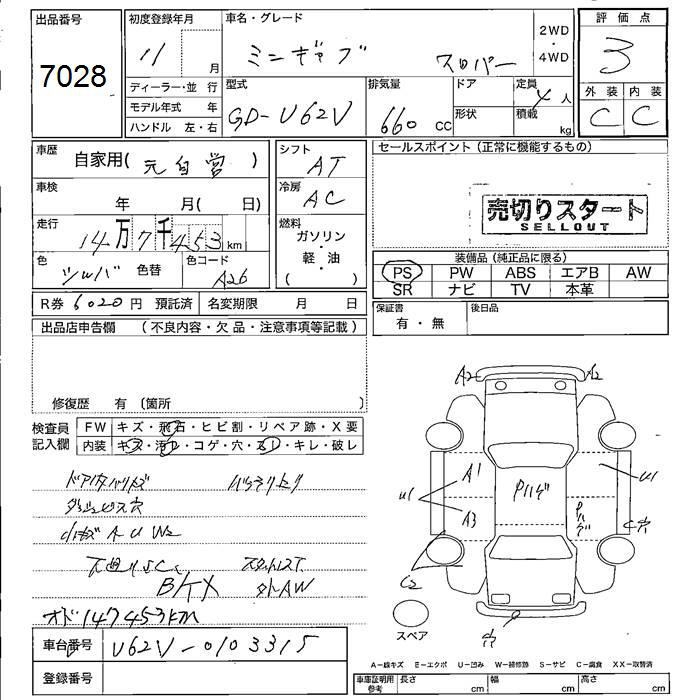 出品番号
7028
初度登録年月
11 月
ディーラー・並 行
モデル年式 年
ハンドル 左・右
車名・グレード
ミニキャブ
2WD・4WD
評価点
3
外装 内装
C C
型式
GD-U62V
排気量
660 CC
ドア
形状
定員
4 人
積載
kg
車歴
自家用(元自営)
シフト
AT
セールスポイント(正常に機能するもの)
車検
年 月( 日)
冷房
AC
売切りスタート
SELLOUT
走行
14万7千453km
燃料
ガソリン・軽・油
( )
色
色替
色コード
A26
装備品(純正品に限る)
PS PW ABS エアB AW
SR ナビ TV 本革
R券 6020円 預託済
名変期限 月 日
保証書
有・無
後日品
出品店申告欄 (不良内容・欠品・注意事項等記載)
修復歴 有 (箇所
検査員記入欄
FW キズ・飛石・ヒビ割・リペア跡・X要
内装 キズ・汚レ・コゲ・穴・スレ・キレ・破レ
A U W2
B/TX
オド147453km
車台番号
U62V-0103315
登録番号
A2 A2
A1
A3
U1
U1
C2
C穴
穴
スペア
A-線キズ E-エクボ U-凹み W-補修跡 S-サビ C-腐食 XX-取替済
車庫証明用参考
長さ cm 幅 cm 高さ cm